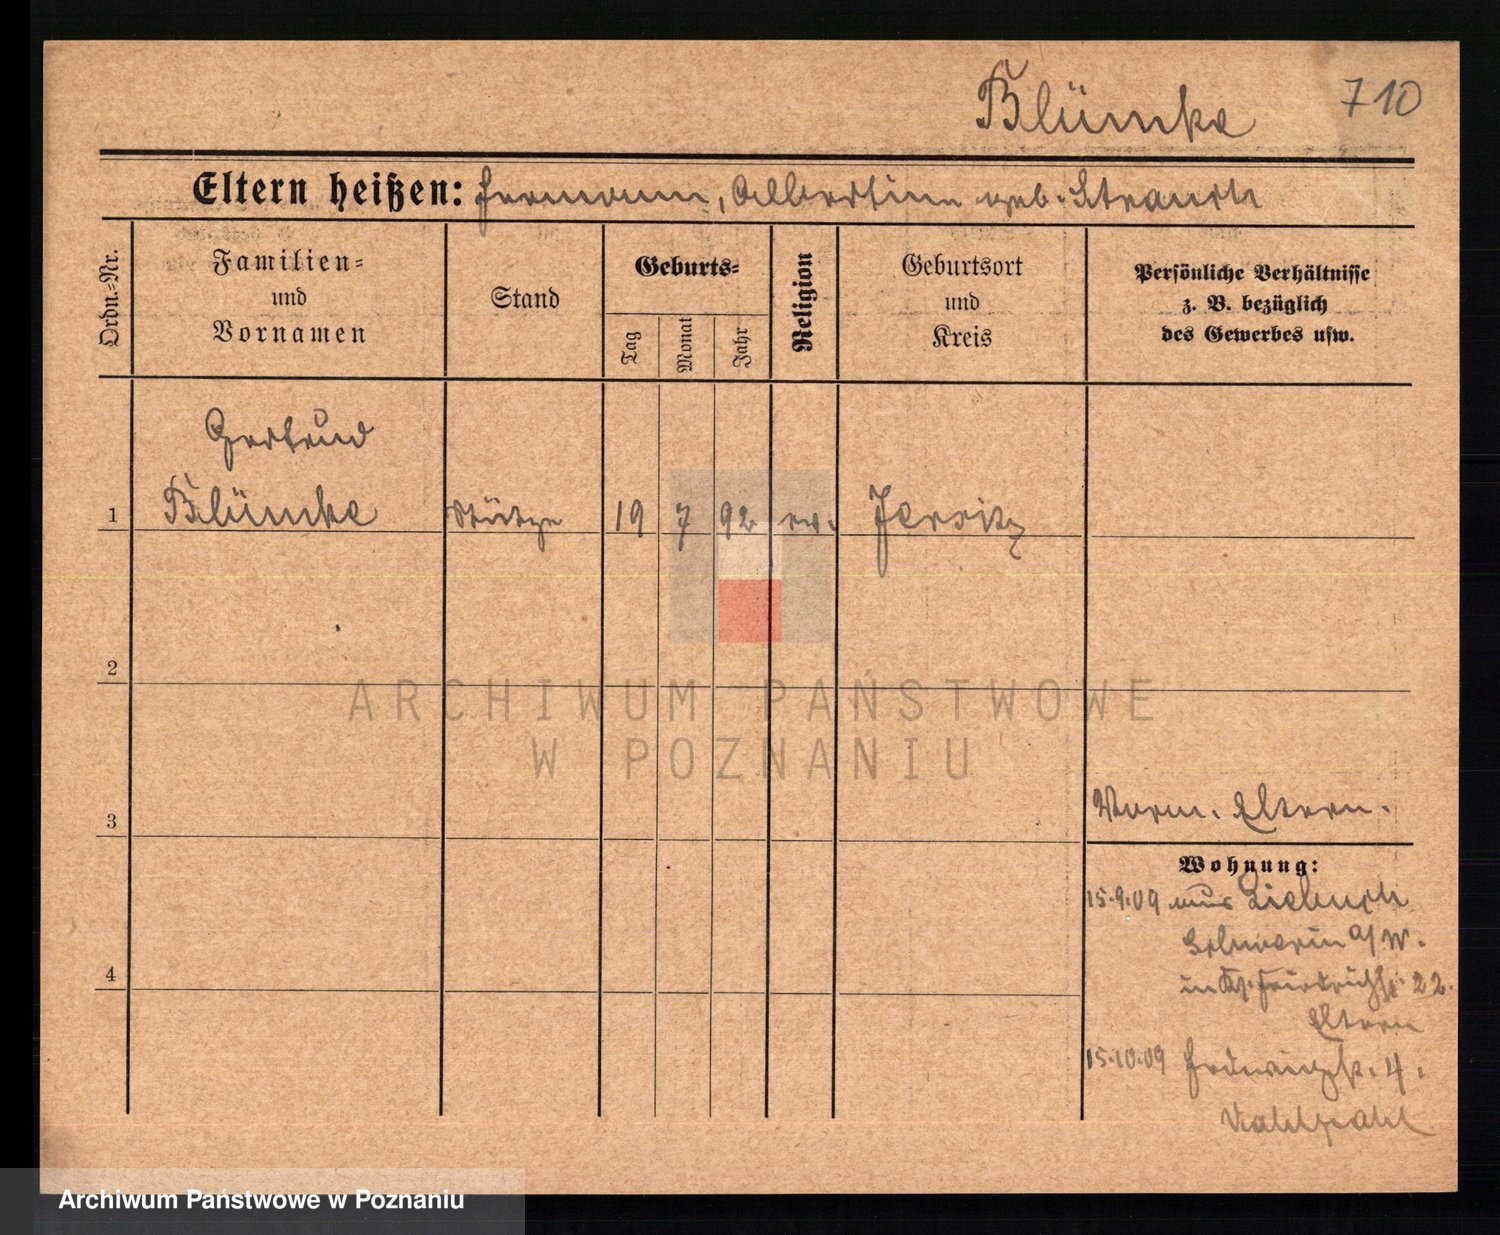 Blümke 710
Eltern heißen: Hermann, Albertine geb. Strauch
Ordn.-Nr.
Familien-
und
Vornamen
Stand
Geburts-
Tag
Monat
Jahr
Religion
Geburtsort
und
Kreis
Persönliche Verhältnisse
z. B. bezüglich
des Gewerbes usw.
Gertrud
1 Blümke Stütze 19 7 92 ev. Jersitz
2
ARCHIWUM PAŃSTWOWE
W POZNANIU
Vorm. Eltern.
3
Wohnung:
15.9.09 aus Liebuch
Schwerin a/W.
4
in Kr. Friedrichstr. 22.
Eltern
15.10.09 Hedwigstr. 4.
Archiwum Państwowe w Poznaniu